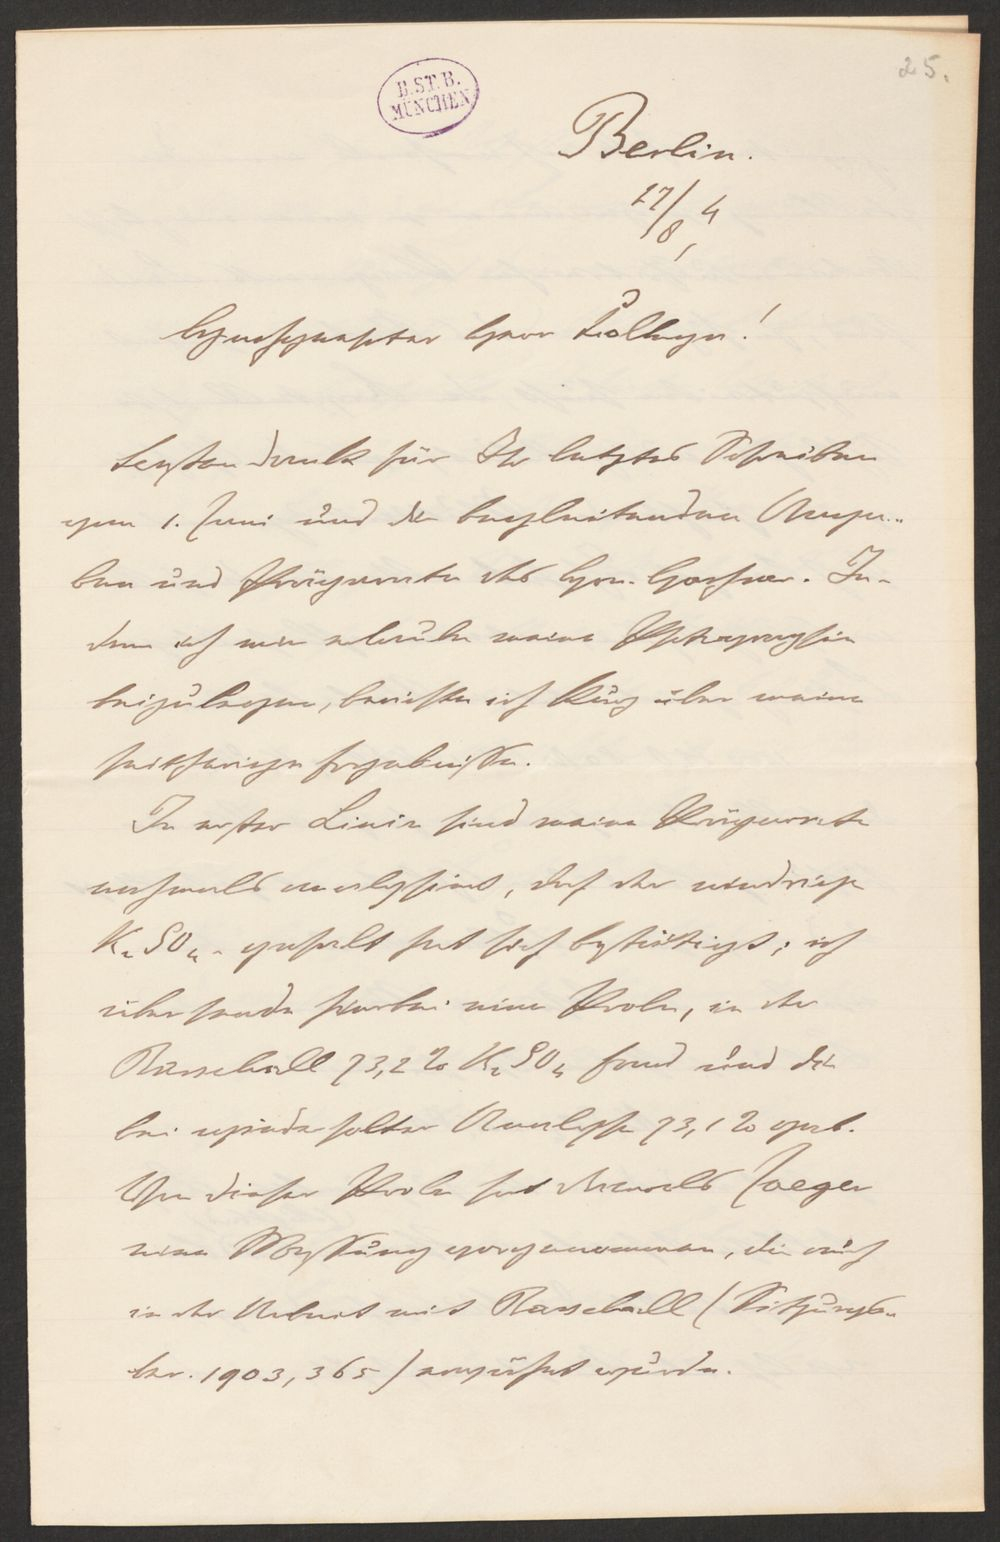 25.
B.ST.B.
MÜNCHEN
Berlin.
27/8, 4
Hochgeehrter Herr College!
Besten Dank für Ihr letztes Schreiben
vom 1. Juni und die begleitenden Anga-
ben und Präparate des Hrn. Gossner. In-
dem ich mir erlaube meine Photographie
beizulegen, berichte ich kurz über meine
seitherigen Ergebnisse.
In erster Linie sind meine Präparate
nochmals analysirt, auf der niedrige
K₂SO₄-gehalt hat sich bestätigt; ich
übersende hierbei eine Probe, in der
Ramschall 73,2 % K₂SO₄ fand und die
bei wiederholter Analyse 73,1 % gab.
Von dieser Probe hat damals Jaeger
eine Messung vorgenommen, die auch
in der Arbeit mit (Sitzungs-
ber. 1903, 365) angeführt wurde.